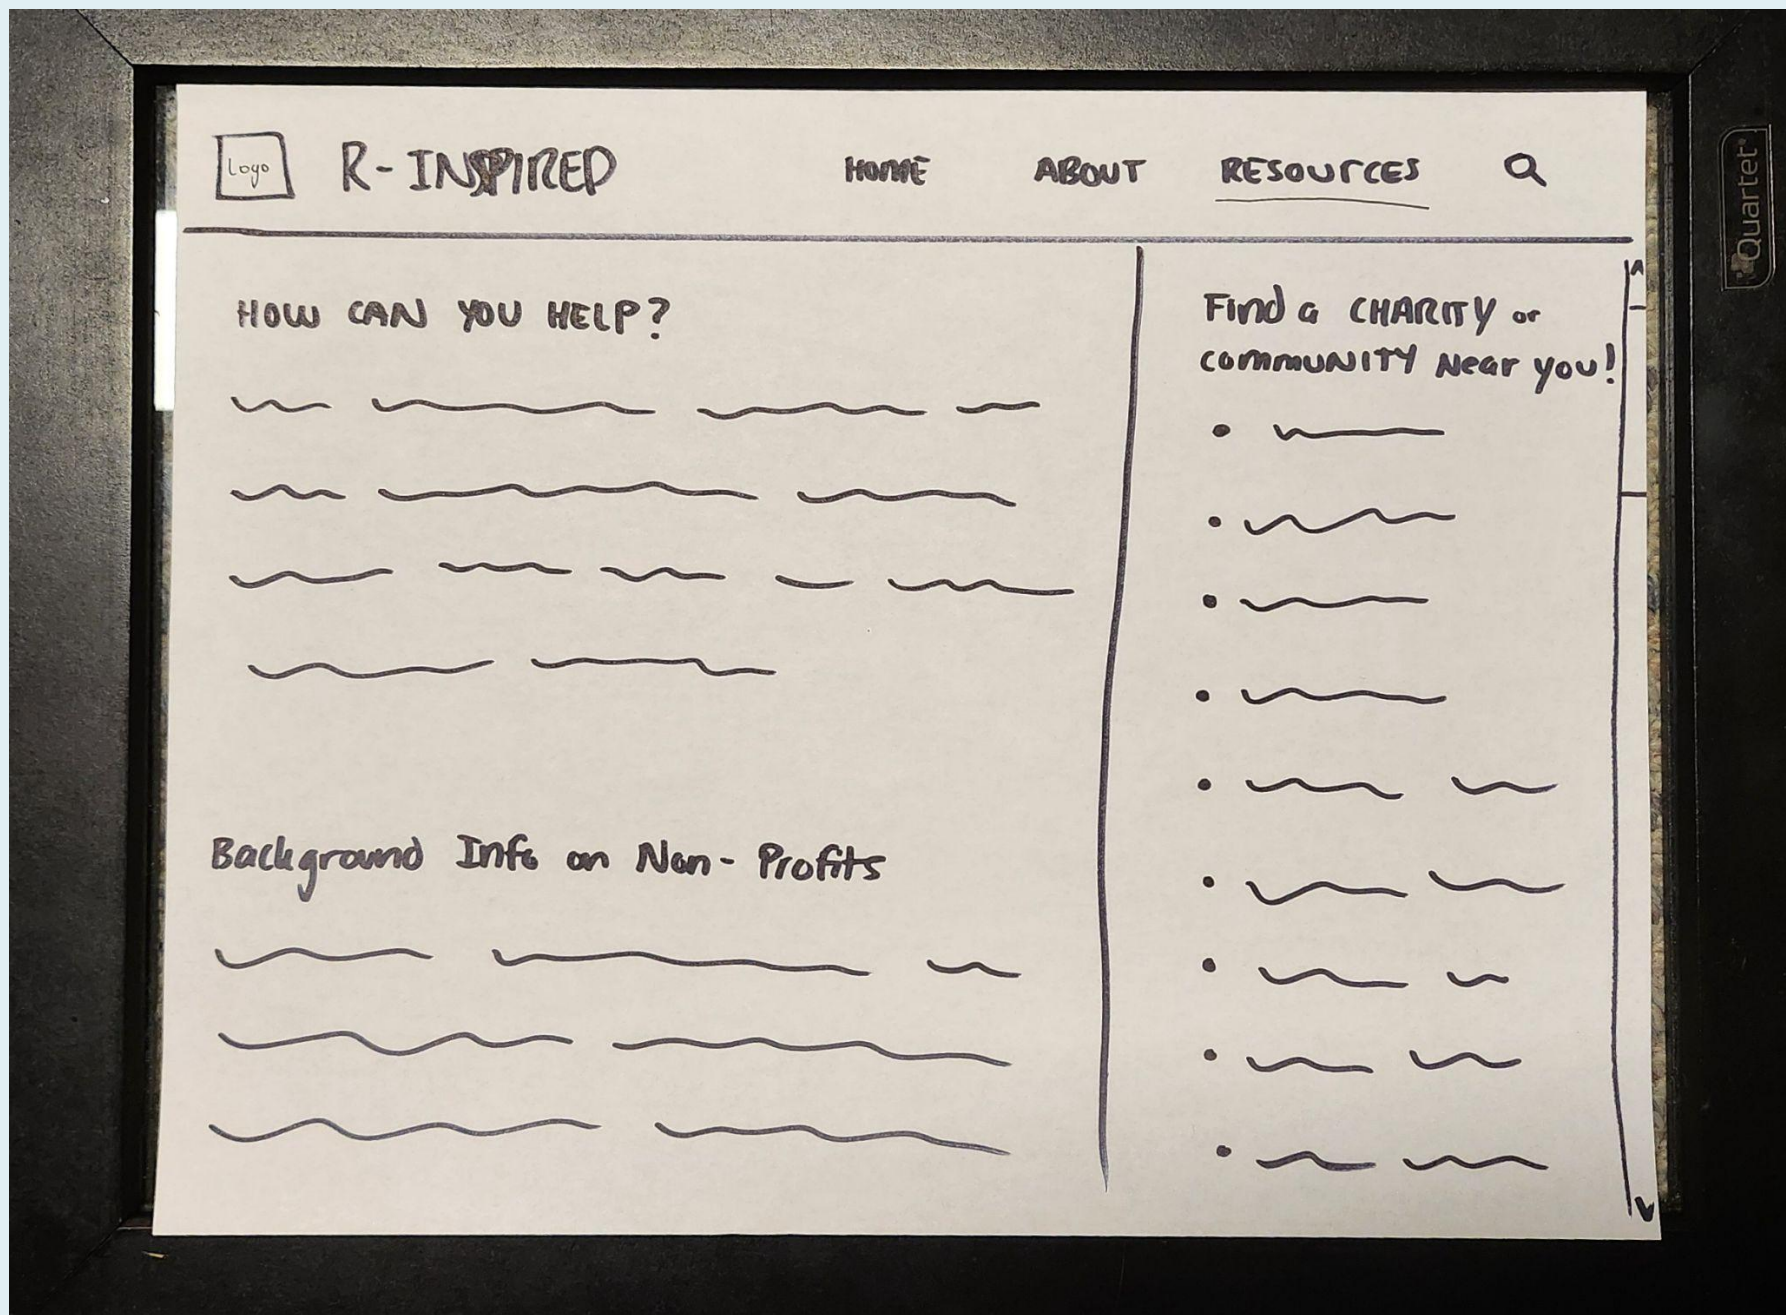 Logo
R-INSPIRED
HOME ABOUT RESOURCES
HOW CAN YOU HELP?
Background Info on Non-Profits
Find a CHARITY or
COMMUNITY Near you!
Quartet